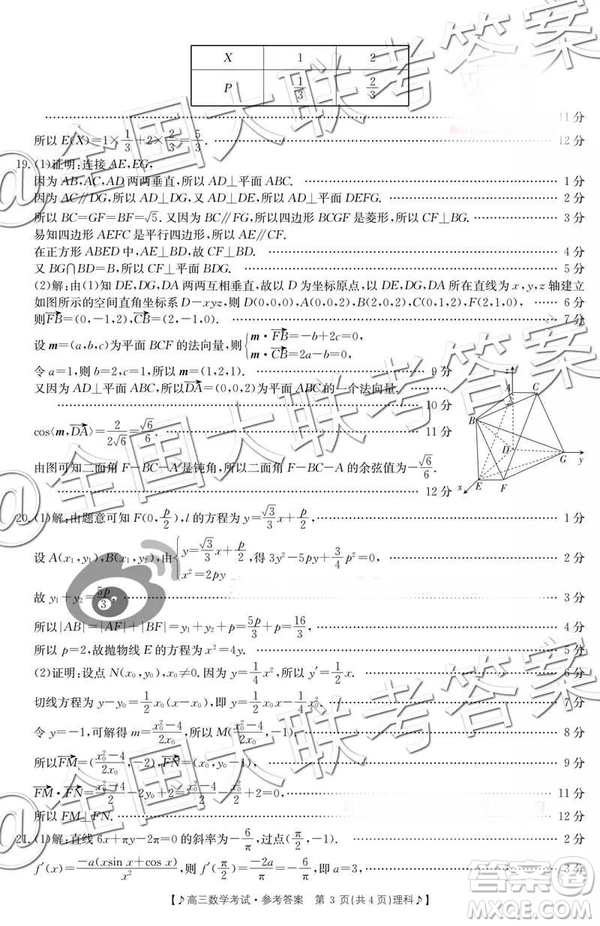 X 1 2
P 1/3 2/3
11 分
所以 E(X)=1×1/3+2×2/3=5/3. 12 分
19. (1)证明:连接 AE,EG,
因为 AB,AC,AD 两两垂直,所以 AD⊥平面 ABC. 1 分
因为 AC∥DG,所以 AD⊥DG,又 AD⊥DE,所以 AD⊥平面 DEFG. 2 分
所以 BC=GF=BF=√5. 又因为 BC∥FG,所以四边形 BCGF 是菱形,所以 CF⊥BG. 3 分
易知四边形 AEFC 是平行四边形,所以 AE∥CF.
在正方形 ABED 中,AE⊥BD,故 CF⊥BD. 4 分
又 BG∩BD=B,所以 CF⊥平面 BDG. 5 分
(2)解:由(1)知 DE,DG,DA 两两互相垂直,故以 D 为坐标原点,以 DE,DG,DA 所在直线为 x,y,z 轴建立
如图所示的空间直角坐标系 D-xyz,则 D(0,0,0),A(0,0,2),B(2,0,2),C(0,1,2),F(2,1,0), 6 分
则FB=(0,-1,2),CB=(2,-1,0). 7 分
设 m=(a,b,c)为平面 BCF 的法向量,则{m·FB=-b+2c=0, m·CB=2a-b=0,
令 a=1,则 b=2,c=1,所以 m=(1,2,1). 9 分
又因为 AD⊥平面 ABC,所以DA=(0,0,2)为平面 ABC 的一个法向量.
10 分
cos⟨m,DA⟩=2/(2√6)=√6/6. 11 分
由图可知二面角 F-BC-A 是钝角,所以二面角 F-BC-A 的余弦值为-√6/6.
12 分
z
A C
B
D G y
x E F
20. (1)解:由题意可知 F(0,p/2),l 的方程为 y=√3/3 x+p/2, 1 分
设 A(x₁,y₁),B(x₂,y₂),由{y=√3/3 x+p/2, x²=2py 得 3y²-5py+3/4 p²=0, 2 分
故 y₁+y₂=5p/3, 3 分
所以|AB|=|AF|+|BF|=y₁+y₂+p=5p/3+p=16/3, 4 分
所以 p=2,故抛物线 E 的方程为 x²=4y. 5 分
(2)证明:设点 N(x₀,y₀),x₀≠0. 因为 y=1/4 x²,所以 y′=1/2 x. 6 分
切线方程为 y-y₀=1/2 x₀(x-x₀),即 y=1/2 x₀x-1/4 x₀². 7 分
令 y=-1,可解得 m=(x₀²-4)/(2x₀),所以 M((x₀²-4)/(2x₀),-1). 8 分
所以FM=((x₀²-4)/(2x₀),-2),FN=(x₀,y₀-1), 9 分
FM·FN=(x₀²-4)/2-2y₀+2=(x₀²-4)/2-x₀²/2+2=0, 11 分
所以 FM⊥FN. 12 分
21. (1)解:直线 6x+πy-2π=0 的斜率为-6/π,过点(π/2,-1). 2 分
f′(x)=-a(xsin x+cos x)/x²,则 f′(π/2)=-2a/π=-6/π,即 a=3, 3 分
【♪高三数学考试·参考答案 第 3 页(共 4 页)理科♪】
@全国大联考答案